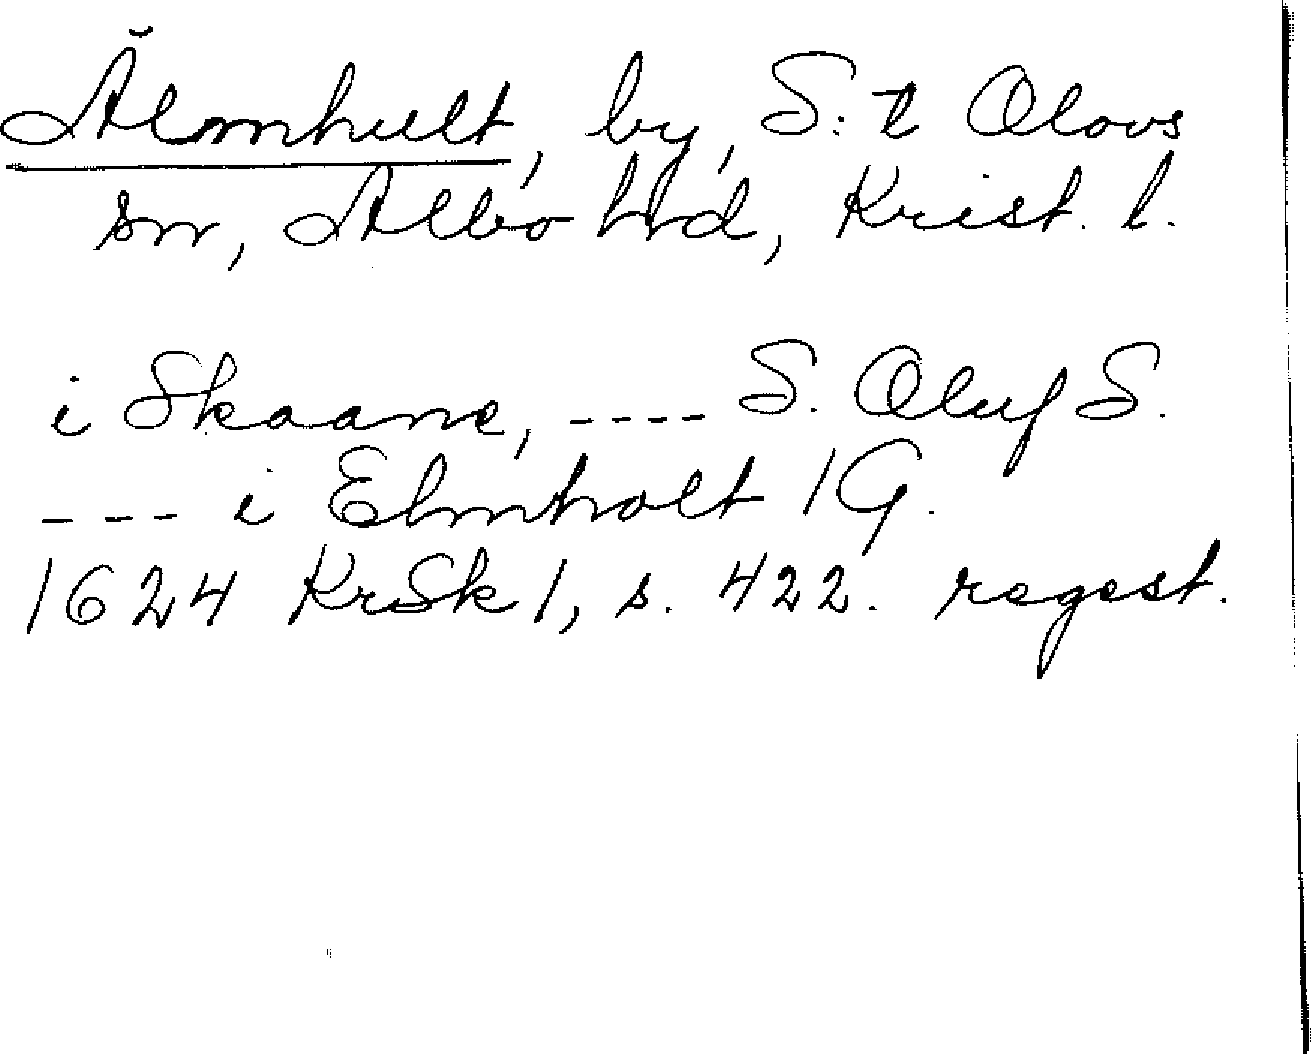 Älmhult, by, S:t Olovs
sn, Albo hd, Krist. l.
i Skaane, ---- S. Oluf S.
--- i Elmholt /G.
1624 KrSk 1, s. 422. regest.